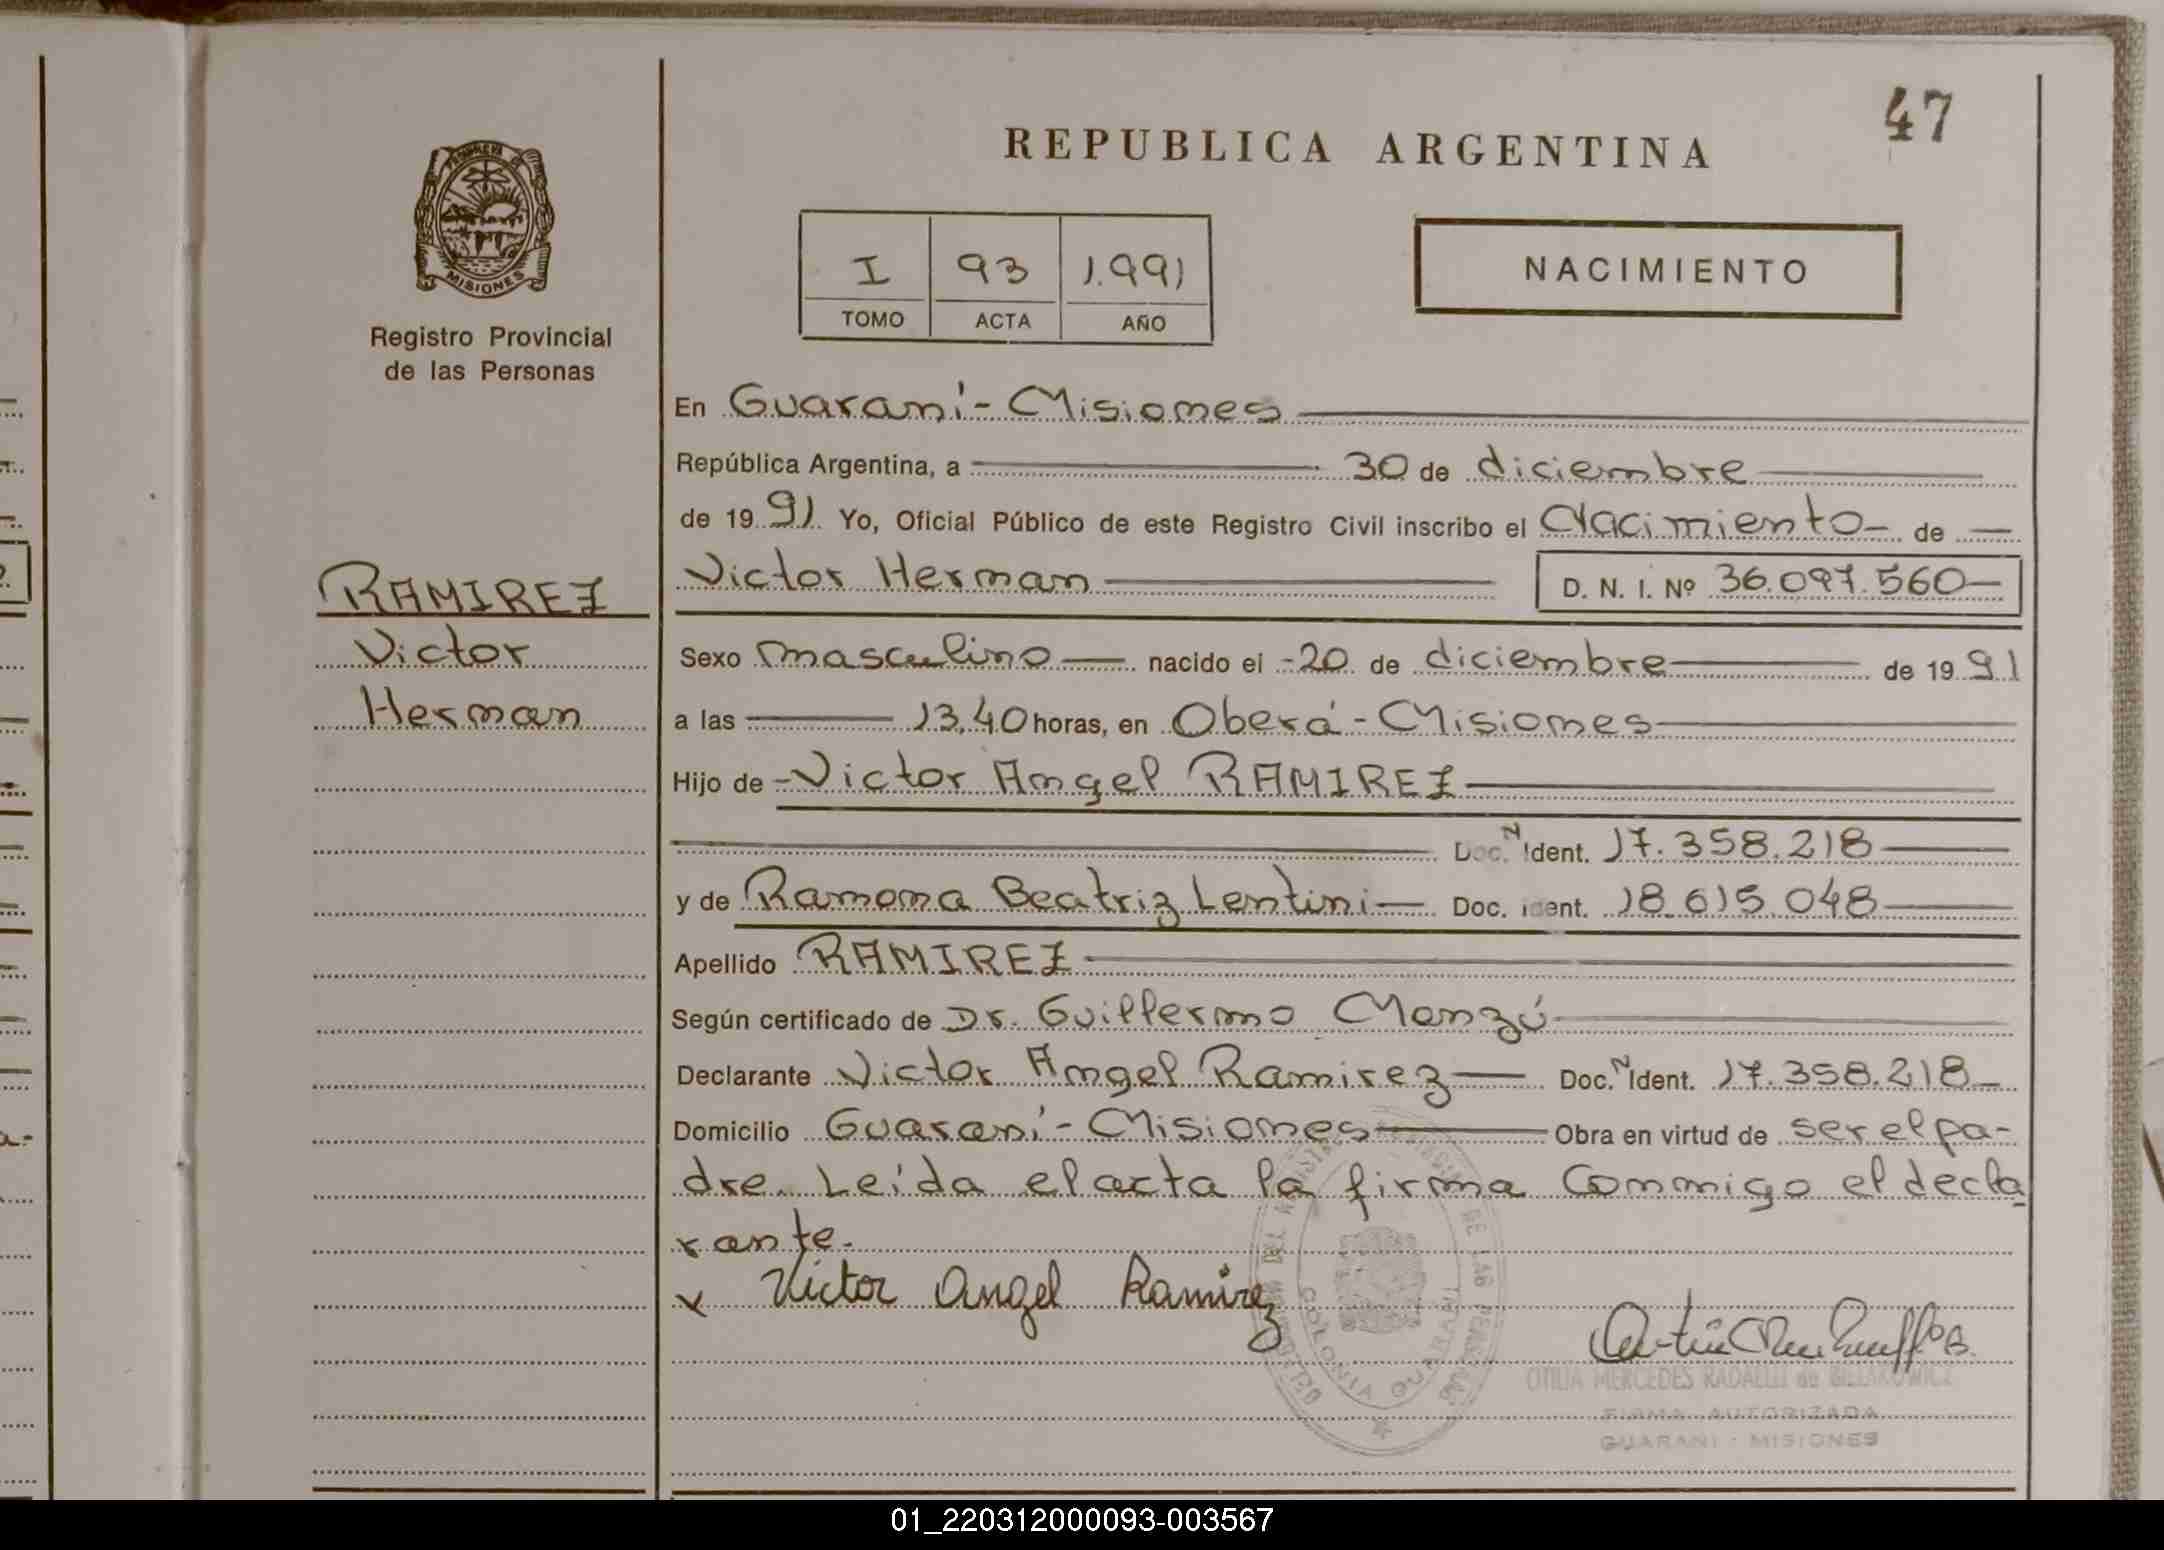 47
REPUBLICA ARGENTINA
PROVINCIA DE
MISIONES
Registro Provincial
de las Personas
I 93 1.991
TOMO ACTA AÑO
NACIMIENTO
En Guaraní - Misiones
República Argentina, a 30 de diciembre
de 19 91 Yo, Oficial Público de este Registro Civil inscribo el Nacimiento - de
Victor Herman D. N. I. Nº 36.097.560
RAMIREZ
Victor
Herman
Sexo masculino nacido el - 20 de diciembre de 19 91
a las 13,40 horas, en Oberá - Misiones
Hijo de - Victor Angel RAMIREZ
Doc. N Ident. 17.358.218
y de Ramona Beatriz Lentini Doc. ident. 18.615.048
Apellido RAMIREZ
Según certificado de Dr. Guillermo Monzú
Declarante Victor Angel Ramirez Doc. N Ident. 17.358.218
Domicilio Guaraní - Misiones Obra en virtud de ser el pa-
dre. Leída el acta la firma conmigo el decla
rante.
x Victor Angel Ramirez
DE LAS PERSONAS
COLONIA GUARANI
OTILIA MERCEDES de
FIRMA AUTORIZADA
GUARANI - MISIONES
01_220312000093-003567